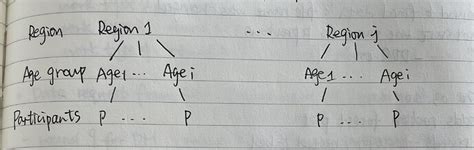 Region Region 1 ... Region j
Age group Age1 ... Agei Age1 ... Agei
Participants P ... P P ... P